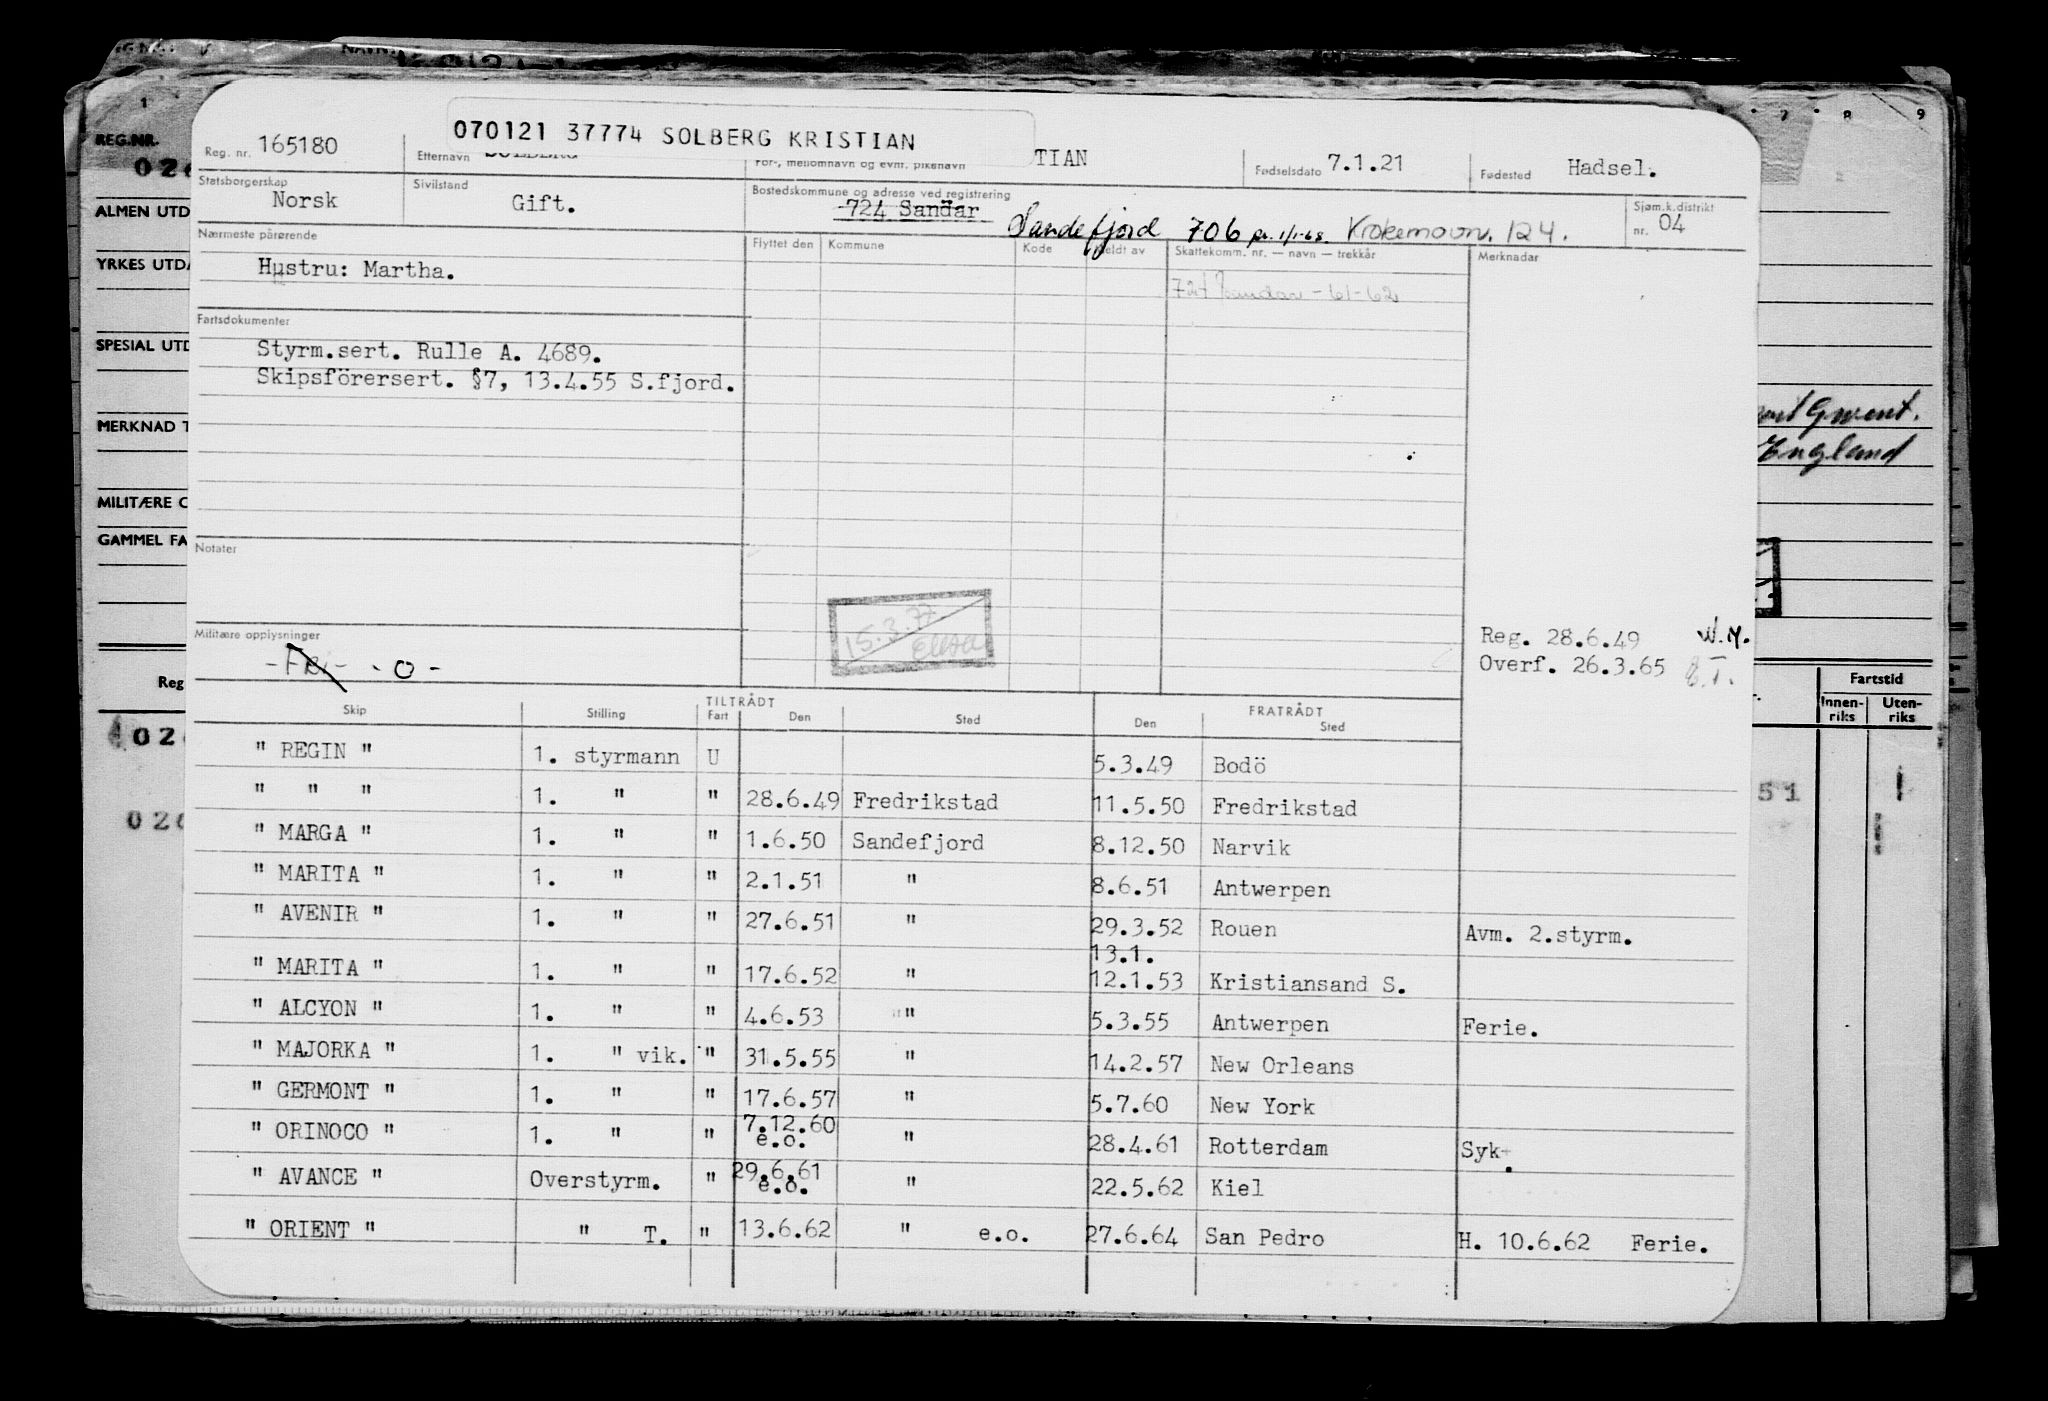 070121 37774 SOLBERG KRISTIAN
Reg. nr. 165180 Etternavn SOLBERG For-, mellomnavn og evnt. pikenavn TIAN Fødselsdato 7.1.21 Fødested Hadsel.
Statsborgerskap Norsk Sivilstand Gift. Bostedskommune og adresse ved registrering 724 Sandar Sandefjord 706 pr. 1/1-68. Krokemovn. 124. Sjøm.k.distrikt nr. 04
Nærmeste pårørende Flyttet den Kommune Kode Meldt av Skattekomm. nr. — navn — trekkår Merknadar
Hustru: Martha.
724 Sandar - 61-62
Fartsdokumenter
Styrm.sert. Rulle A. 4689.
Skipsförersert. §7, 13.4.55 S.fjord.
Notater
15.3.77
Militære opplysninger
-Fri- - 0 -
Reg. 28.6.49 W.M.
Overf. 26.3.65 E.T.
TILTRÅDT FRATRÅDT
Skip Stilling Fart Den Sted Den Sted
" REGIN " 1. styrmann U 5.3.49 Bodö
" " " 1. " " 28.6.49 Fredrikstad 11.5.50 Fredrikstad
" MARGA " 1. " " 1.6.50 Sandefjord 8.12.50 Narvik
" MARITA " 1. " " 2.1.51 " 8.6.51 Antwerpen
" AVENIR " 1. " " 27.6.51 " 29.3.52 Rouen Avm. 2.styrm.
13.1.
" MARITA " 1. " " 17.6.52 " 12.1.53 Kristiansand S.
" ALCYON " 1. " " 4.6.53 " 5.3.55 Antwerpen Ferie.
" MAJORKA " 1. " vik. " 31.5.55 " 14.2.57 New Orleans
" GERMONT " 1. " " 17.6.57 " 5.7.60 New York
" ORINOCO " 1. " " 7.12.60 e.o. " 28.4.61 Rotterdam Syk.
" AVANCE " Overstyrm. " 29.6.61 e.o. " 22.5.62 Kiel
" ORIENT " " T. " 13.6.62 " e.o. 27.6.64 San Pedro H. 10.6.62 Ferie.
REG.NR.
ALMEN UTD
YRKES UTDA
SPESIAL UTD
MERKNAD T
MILITÆRE O
GAMMEL FA
Reg
020
020
Gwent.
England
Fartstid
Innen-riks Uten-riks
51 1